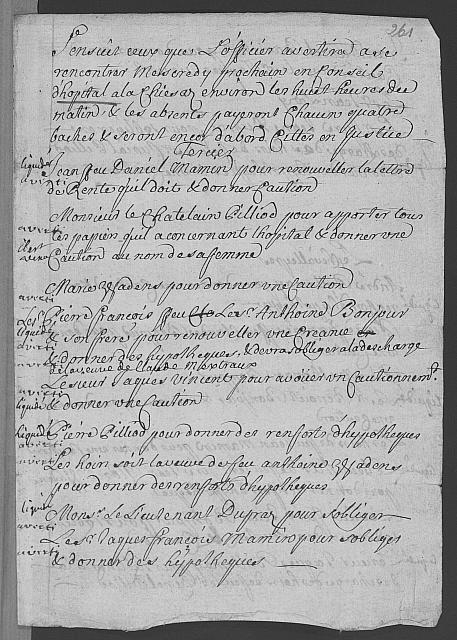 261
S'ensuit ceux que L'officier avertira a se
rencontrer Mescredy prochain en Conseil
d'hopital a la Chiesaz environ les huict heures de
matin & les absents payeront Chacun quatre
baches & seront encor d'abord Cittés en Justice
liquidé
averti
Jean feu Daniel Mamin pour renouveller la lettre
de Rente qu'il doit & donner Caution
averti
Monsieur le Chatelain Pilliod pour apporter tous
les papiers qu'il a concernant l'hopital & donner vne
Caution au nom de sa femme
averti
Marie pour donner vne Caution
liquidé
averti
Pierre François feu Le Sr. Anthoine Bonjour
& son frere pour renouveller vne Creance
& donner des hypotheques, & devra s'obliger a la descharge
de la veuve de Claude
averti
liquidé
Le sieur Jaques Vincent pour avoier vn Cautionnemt.
& donner vne Caution
liquidé
averti
Pierre Pilliod pour donner des renforts d'hypotheques
averti
Les hoirs soit la veuve de feu anthoine
pour donner des renforts d'hypotheques
liquidé
averti
Monsr. Le Lieutenant Dupraz pour s'obliger
averti
Le Sr. Jaques François Mamin pour s'obliger
& donner des hypotheques